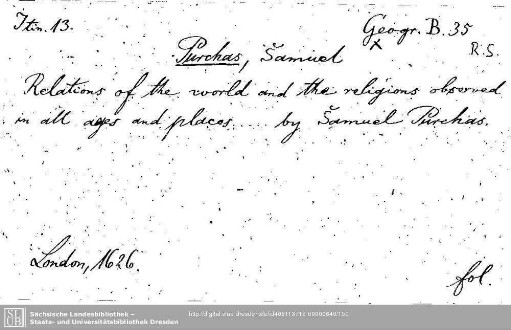 Itin. 13.
Geogr. B. 35
x
R.S.
Purchas, Samuel
Relations of the world and the religions observed
in all ages and places ... by Samuel Purchas.
London, 1626.
fol.
Sächsische Landesbibliothek –
Staats- und Universitätsbibliothek Dresden